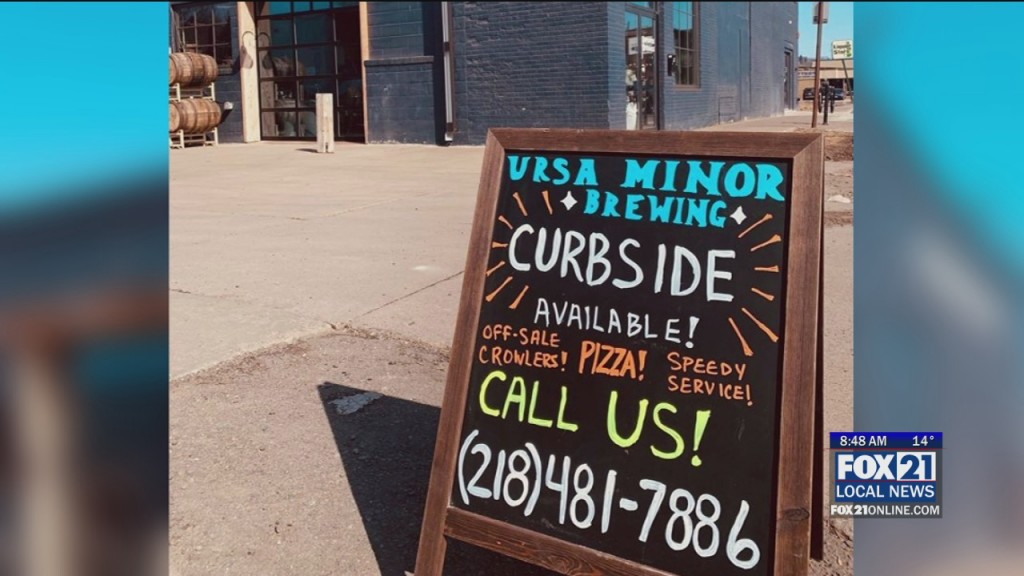 URSA MINOR
BREWING
CURBSIDE
AVAILABLE!
OFF-SALE
CROWLERS!
PIZZA!
SPEEDY
SERVICE!
CALL US!
(218)481-7886
8:48 AM 14°
FOX 21
LOCAL NEWS
FOX21ONLINE.COM